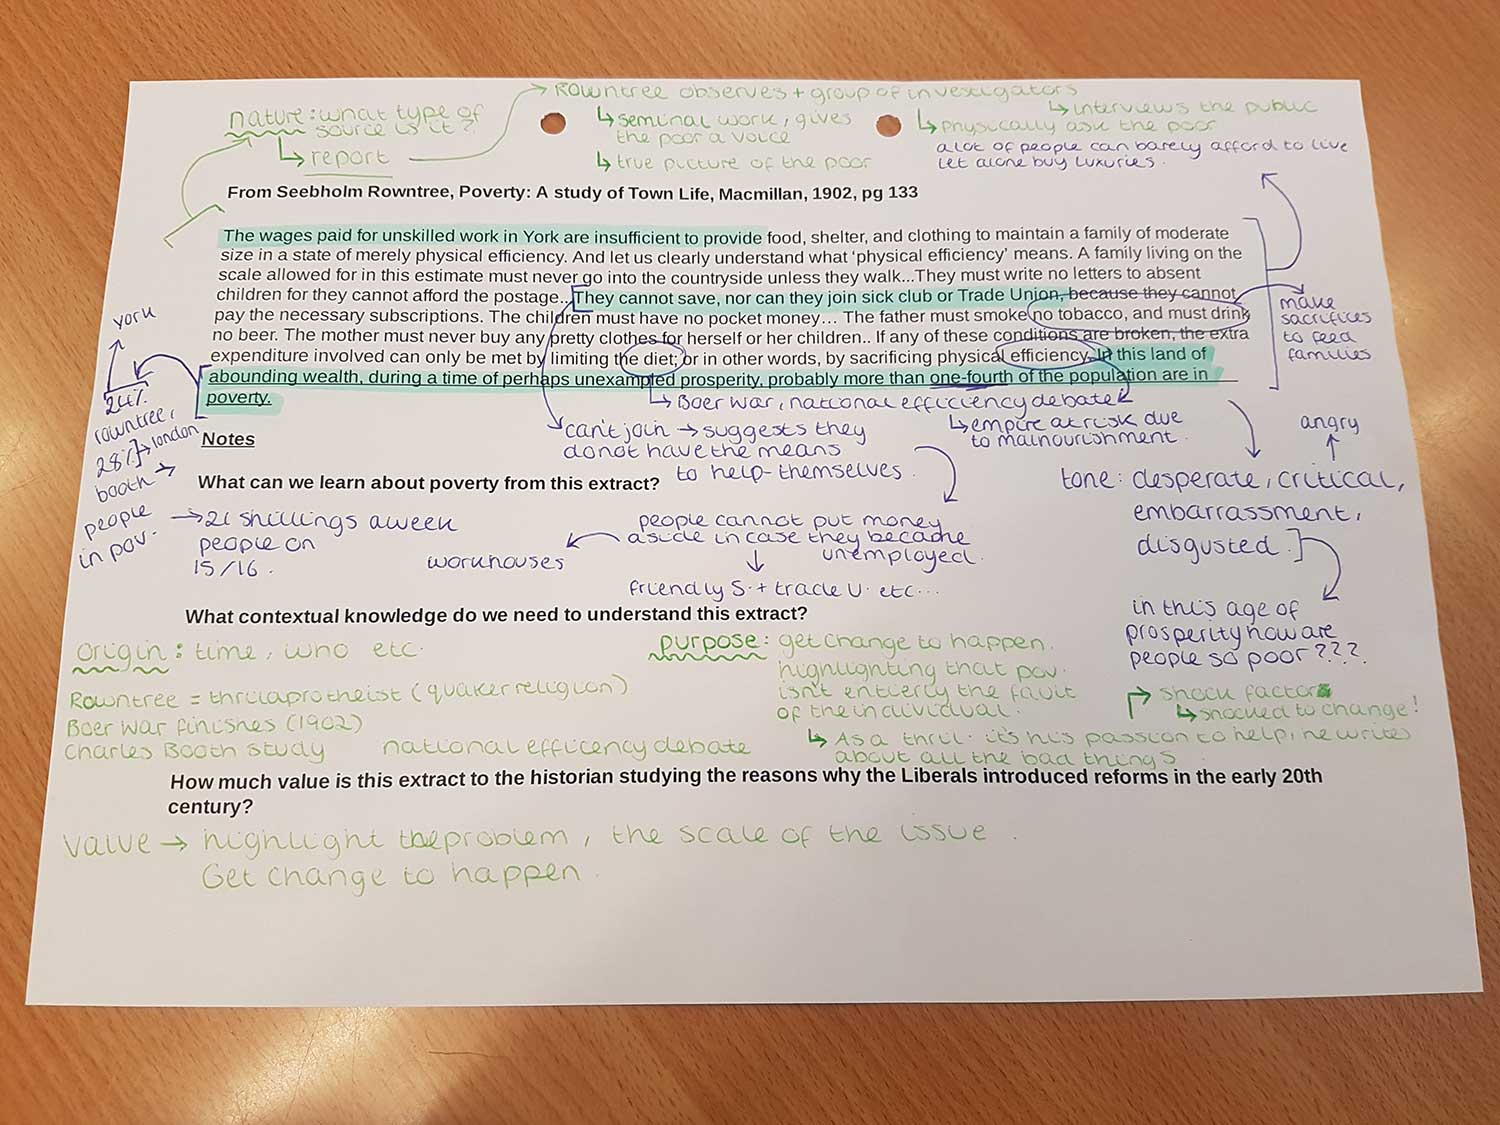 Rowntree observes + group of investigators
nature: what type of
source is it?
report
seminal work, gives
the poor a voice
true picture of the poor
interviews the public
physically ask the poor
a lot of people can barely afford to live
let alone buy luxuries.
From Seebholm Rowntree, Poverty: A study of Town Life, Macmillan, 1902, pg 133
The wages paid for unskilled work in York are insufficient to provide food, shelter, and clothing to maintain a family of moderate
size in a state of merely physical efficiency. And let us clearly understand what ‘physical efficiency’ means. A family living on the
scale allowed for in this estimate must never go into the countryside unless they walk...They must write no letters to absent
children for they cannot afford the postage...They cannot save, nor can they join sick club or Trade Union, because they cannot
pay the necessary subscriptions. The children must have no pocket money… The father must smoke no tobacco, and must drink
no beer. The mother must never buy any pretty clothes for herself or her children.. If any of these conditions are broken, the extra
expenditure involved can only be met by limiting the diet; or in other words, by sacrificing physical efficiency. In this land of
abounding wealth, during a time of perhaps unexampled prosperity, probably more than one-fourth of the population are in
poverty.
make
sacrifices
to feed
families
york
24%
rowntree,
28%] → london
booth →
people
in pov.
Boer war, national efficiency debate
empire at risk due
to malnourishment.
can't join → suggests they
do not have the means
to help themselves.
Notes
What can we learn about poverty from this extract?
→ 21 shillings a week
people on
15/16.
people cannot put money
aside in case they became
unemployed.
workhouses
friendly S. + trade U. etc...
angry
tone: desperate, critical,
embarrassment,
disgusted.
in this age of
prosperity how are
people so poor???.
What contextual knowledge do we need to understand this extract?
origin: time, who etc.
Rowntree = thrilaprotheist (quaker religion)
Boer war finishes (1902)
Charles Booth study
national efficency debate
purpose: get change to happen.
highlighting that pov.
isn't entierly the fault
of the individual.
shock factor
shocked to change!
As a thril. it's his passion to help, he writes
about all the bad things
How much value is this extract to the historian studying the reasons why the Liberals introduced reforms in the early 20th
century?
value → highlight the problem, the scale of the issue.
Get change to happen.